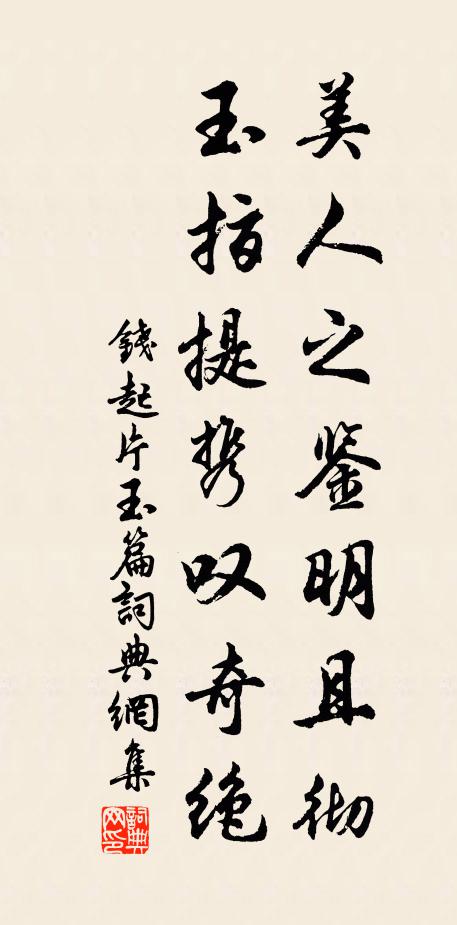 美人之鉴明且彻
玉指提携叹奇绝
錢起片玉篇詞典網集
詞典网印